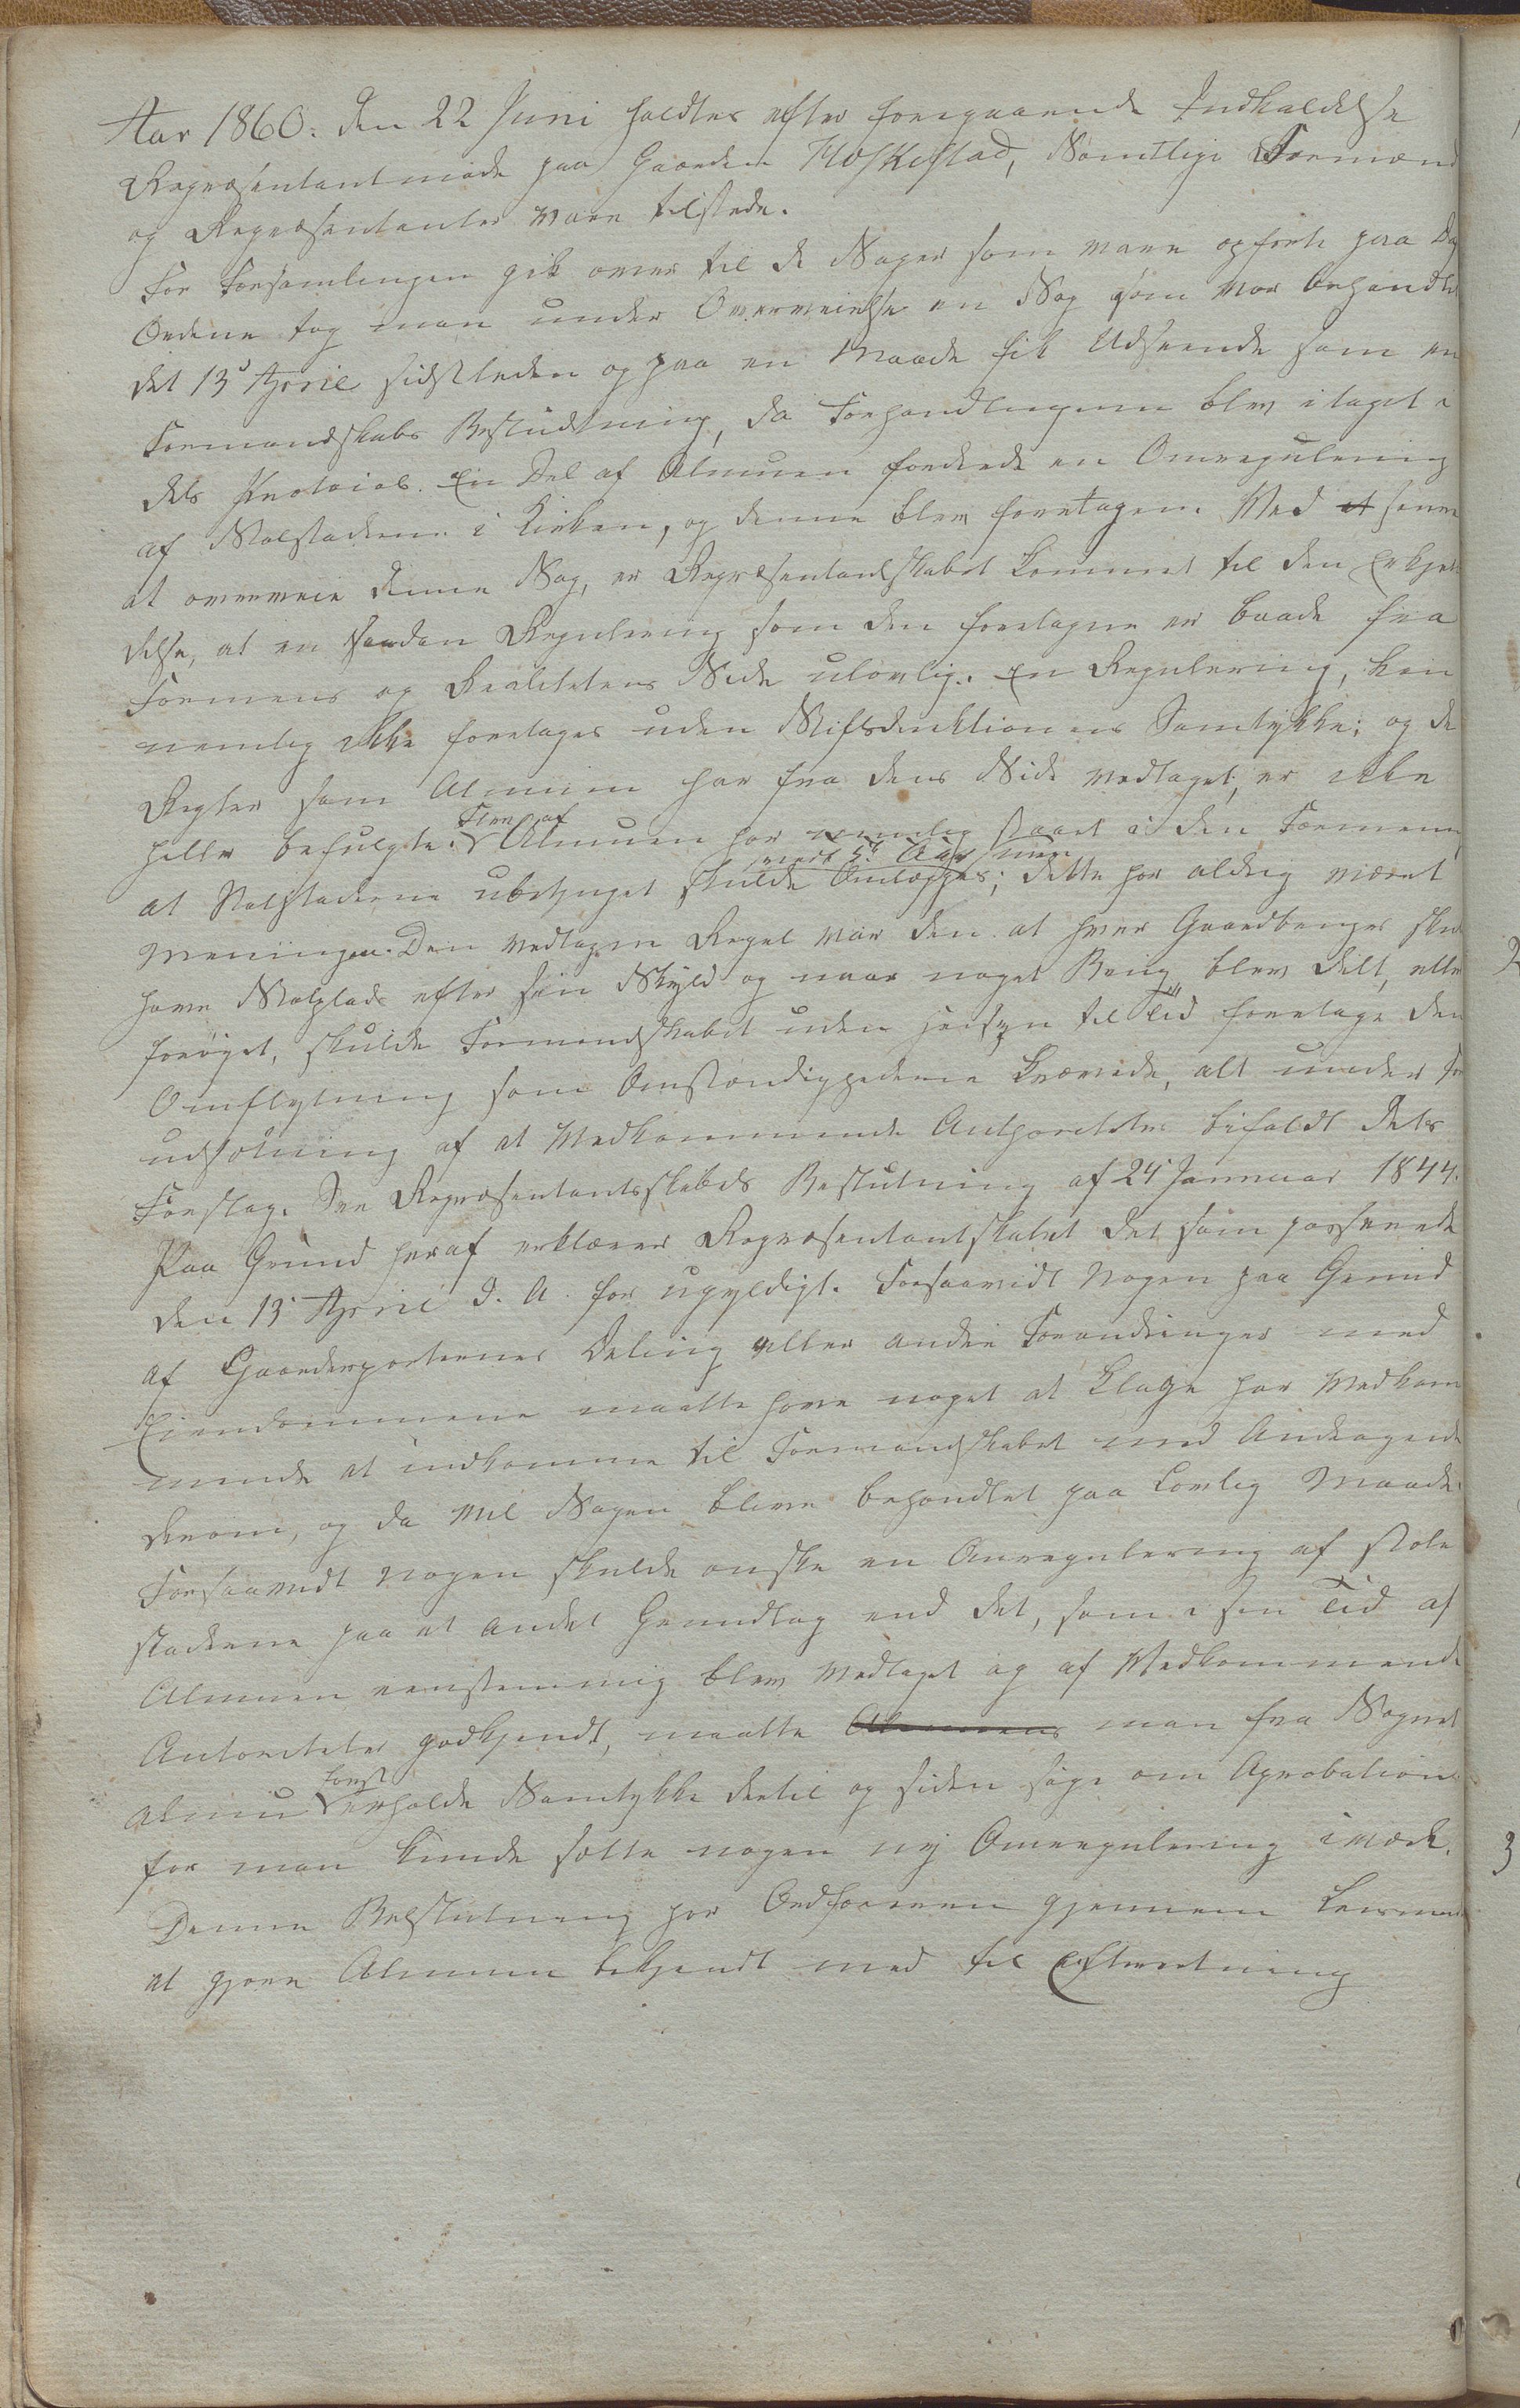 Aar 1860. den 22 Juni holdtes efter foregaaende Indkaldelse
Repræsentantmøde paa Gaarden Hoskestad, Samtlige Formænd
og Repræsentanter vare tilstede.
Før Forsamlingen gik over til de Sager som vare opførte paa Dag
Ordene tog man under Overveielse en Sag som var behandlet
det 13de April sidstleden og paa en Maade fik Udseende som en
Formandskabs Beslutning, da Forhandlingerne blev itaget i
dets Protocol. En Del af Almuen fordrede en Omregulering
af Stolstaderne i Kirken, og denne blev foretagen. Ved at senere
at overveie denne Sag, er Repræsentantskabet kommet til den Erkjen
delse, at en saadan Regulering som den foretagne er baade fra
Formens og Realitetens Side ulovlig. En Regulering, kan
nemlig ikke foretages uden Stiftsdirektionens Samtykke; og de
Regler som Almuen har fra dens Side vedtaget, er ikke
heller befulgte. Flere af Almuen har nemlig staaet i den Formening
at Stolstaderne ubetinget hvert 5te Aar skulde Omlægges; dette har aldrig været
Meningen. Den vedtagne Regel var den at hver Gaardbruger skul
have Stolplads efter sin Skyld og naar noget Brug blev delt, eller
forøget, skulde Formandskabet uden Hensyn til Tid foretage den
Omflytning som Omstændighederne krævede, alt under For
udsætning af at Vedkommende Authoriteter bifaldt dets
Forslag. See Repræsentantskabets Beslutning af 24 Januar 1844.
Paa Grund heraf erklærer Repræsentantskabet det som passerede
den 13de April d. A. for ugyldigt. Forsaavidt Nogen paa Grund
af Gaardeparternes Deling eller andre Forandringer med
Eiendommene maatte have noget at klage har Vedkom
mende at indkomme til Formandskabet med Andragende
derom, og da vil Sagen blive behandlet paa Lovlig Maade.
Forsaavidt nogen skulde ønske en Omregulering af Stole
staderne paa et andet Grundlag end det, som i sin Tid af
Almuen eenstemmig blev Vedtaget og af Vedkommende
Autoriteter godkjendt, maatte Almuens man fra Sognets
Almue først erholde Samtykke dertil og siden søge om Aprobation
før man kunde sætte nogen ny Omregulering i værk.
Denne Beslutning har Ordføreren gjennem Lensmand
at gjøre Almuen bekjendt med til Efterretning